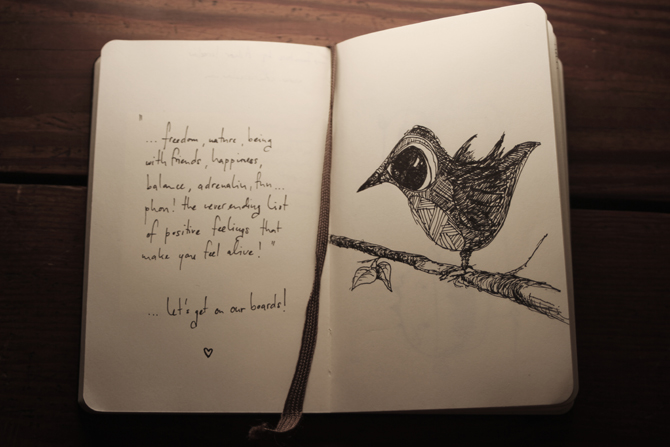 "
... freedom, nature, being
with friends, happiness,
balance, adrenalin, fun...
phon! the neverending list
of positive feelings that
make you feel alive! "
... let's get on our boards!
♡